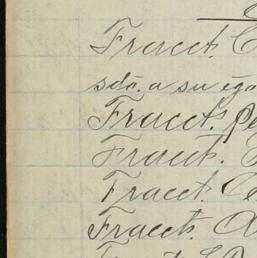 Fracct. C
sdo. a su ego
Fracct. Pe
Fracct.
Fracct. Ce
Fracct. A
Fracct.